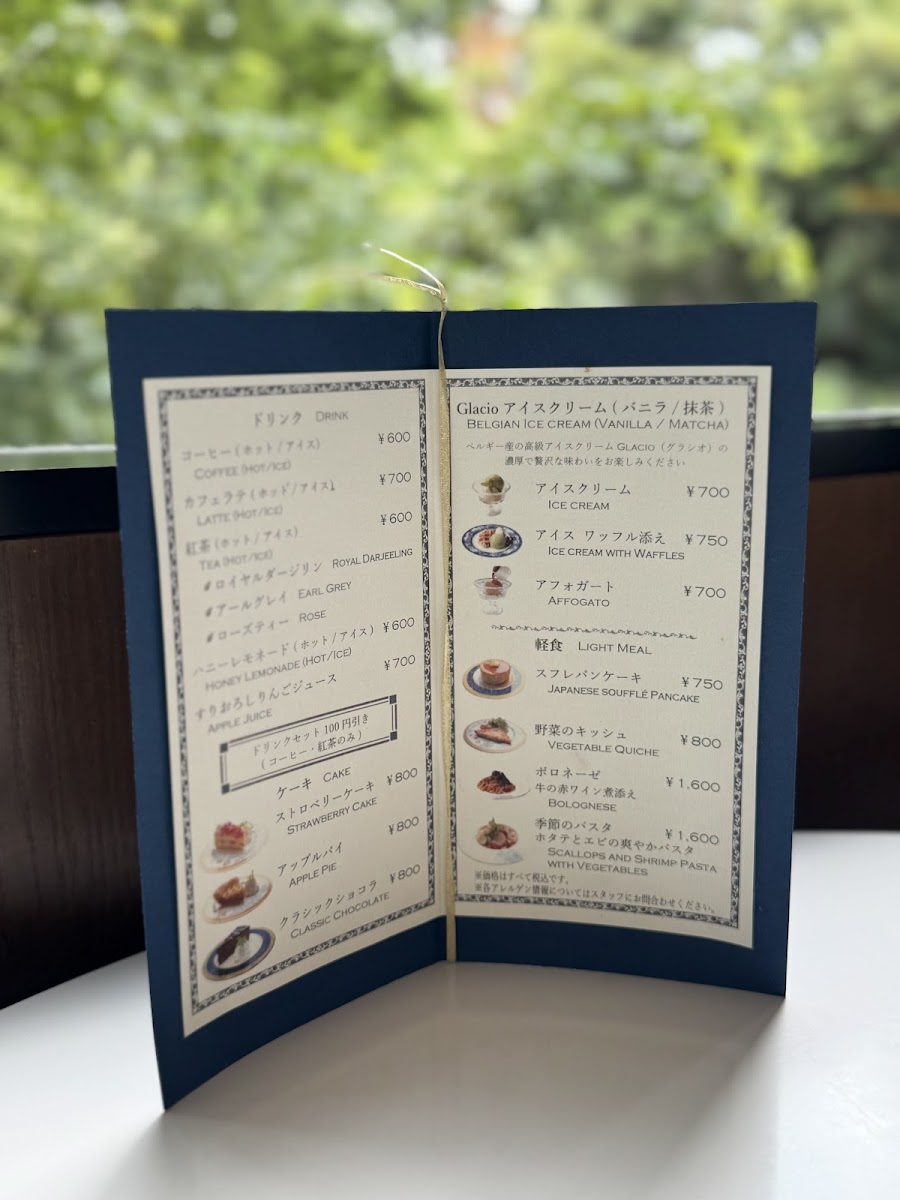 ドリンク DRINK
コーヒー(ホット/アイス) ¥600
COFFEE (HOT/ICE)
カフェラテ(ホッド/アイス) ¥700
LATTE (HOT/ICE)
紅茶(ホット/アイス) ¥600
TEA (HOT/ICE)
ロイヤルダージリン ROYAL DARJEELING
アールグレイ EARL GREY
ローズティー ROSE
ハニーレモネード(ホット/アイス) ¥600
HONEY LEMONADE (HOT/ICE)
すりおろしりんごジュース ¥700
APPLE JUICE
ドリンクセット100円引き
(コーヒー・紅茶のみ)
ケーキ CAKE
ストロベリーケーキ ¥800
STRAWBERRY CAKE
アップルパイ ¥800
APPLE PIE
クラシックショコラ ¥800
CLASSIC CHOCOLATE
Glacio アイスクリーム(バニラ/抹茶)
BELGIAN ICE CREAM (VANILLA / MATCHA)
ベルギー産の高級アイスクリーム GLACIO(グラシオ)の
濃厚で贅沢な味わいをお楽しみください
アイスクリーム ¥700
ICE CREAM
アイス ワッフル添え ¥750
ICE CREAM WITH WAFFLES
アフォガート ¥700
AFFOGATO
軽食 LIGHT MEAL
スフレパンケーキ ¥750
JAPANESE SOUFFLÉ PANCAKE
野菜のキッシュ ¥800
VEGETABLE QUICHE
ボロネーゼ ¥1,600
牛の赤ワイン煮添え
BOLOGNESE
季節のパスタ ¥1,600
ホタテとエビの爽やかパスタ
SCALLOPS AND SHRIMP PASTA
WITH VEGETABLES
※価格はすべて税込です。
※各アレルゲン情報についてはスタッフにお問合わせください。